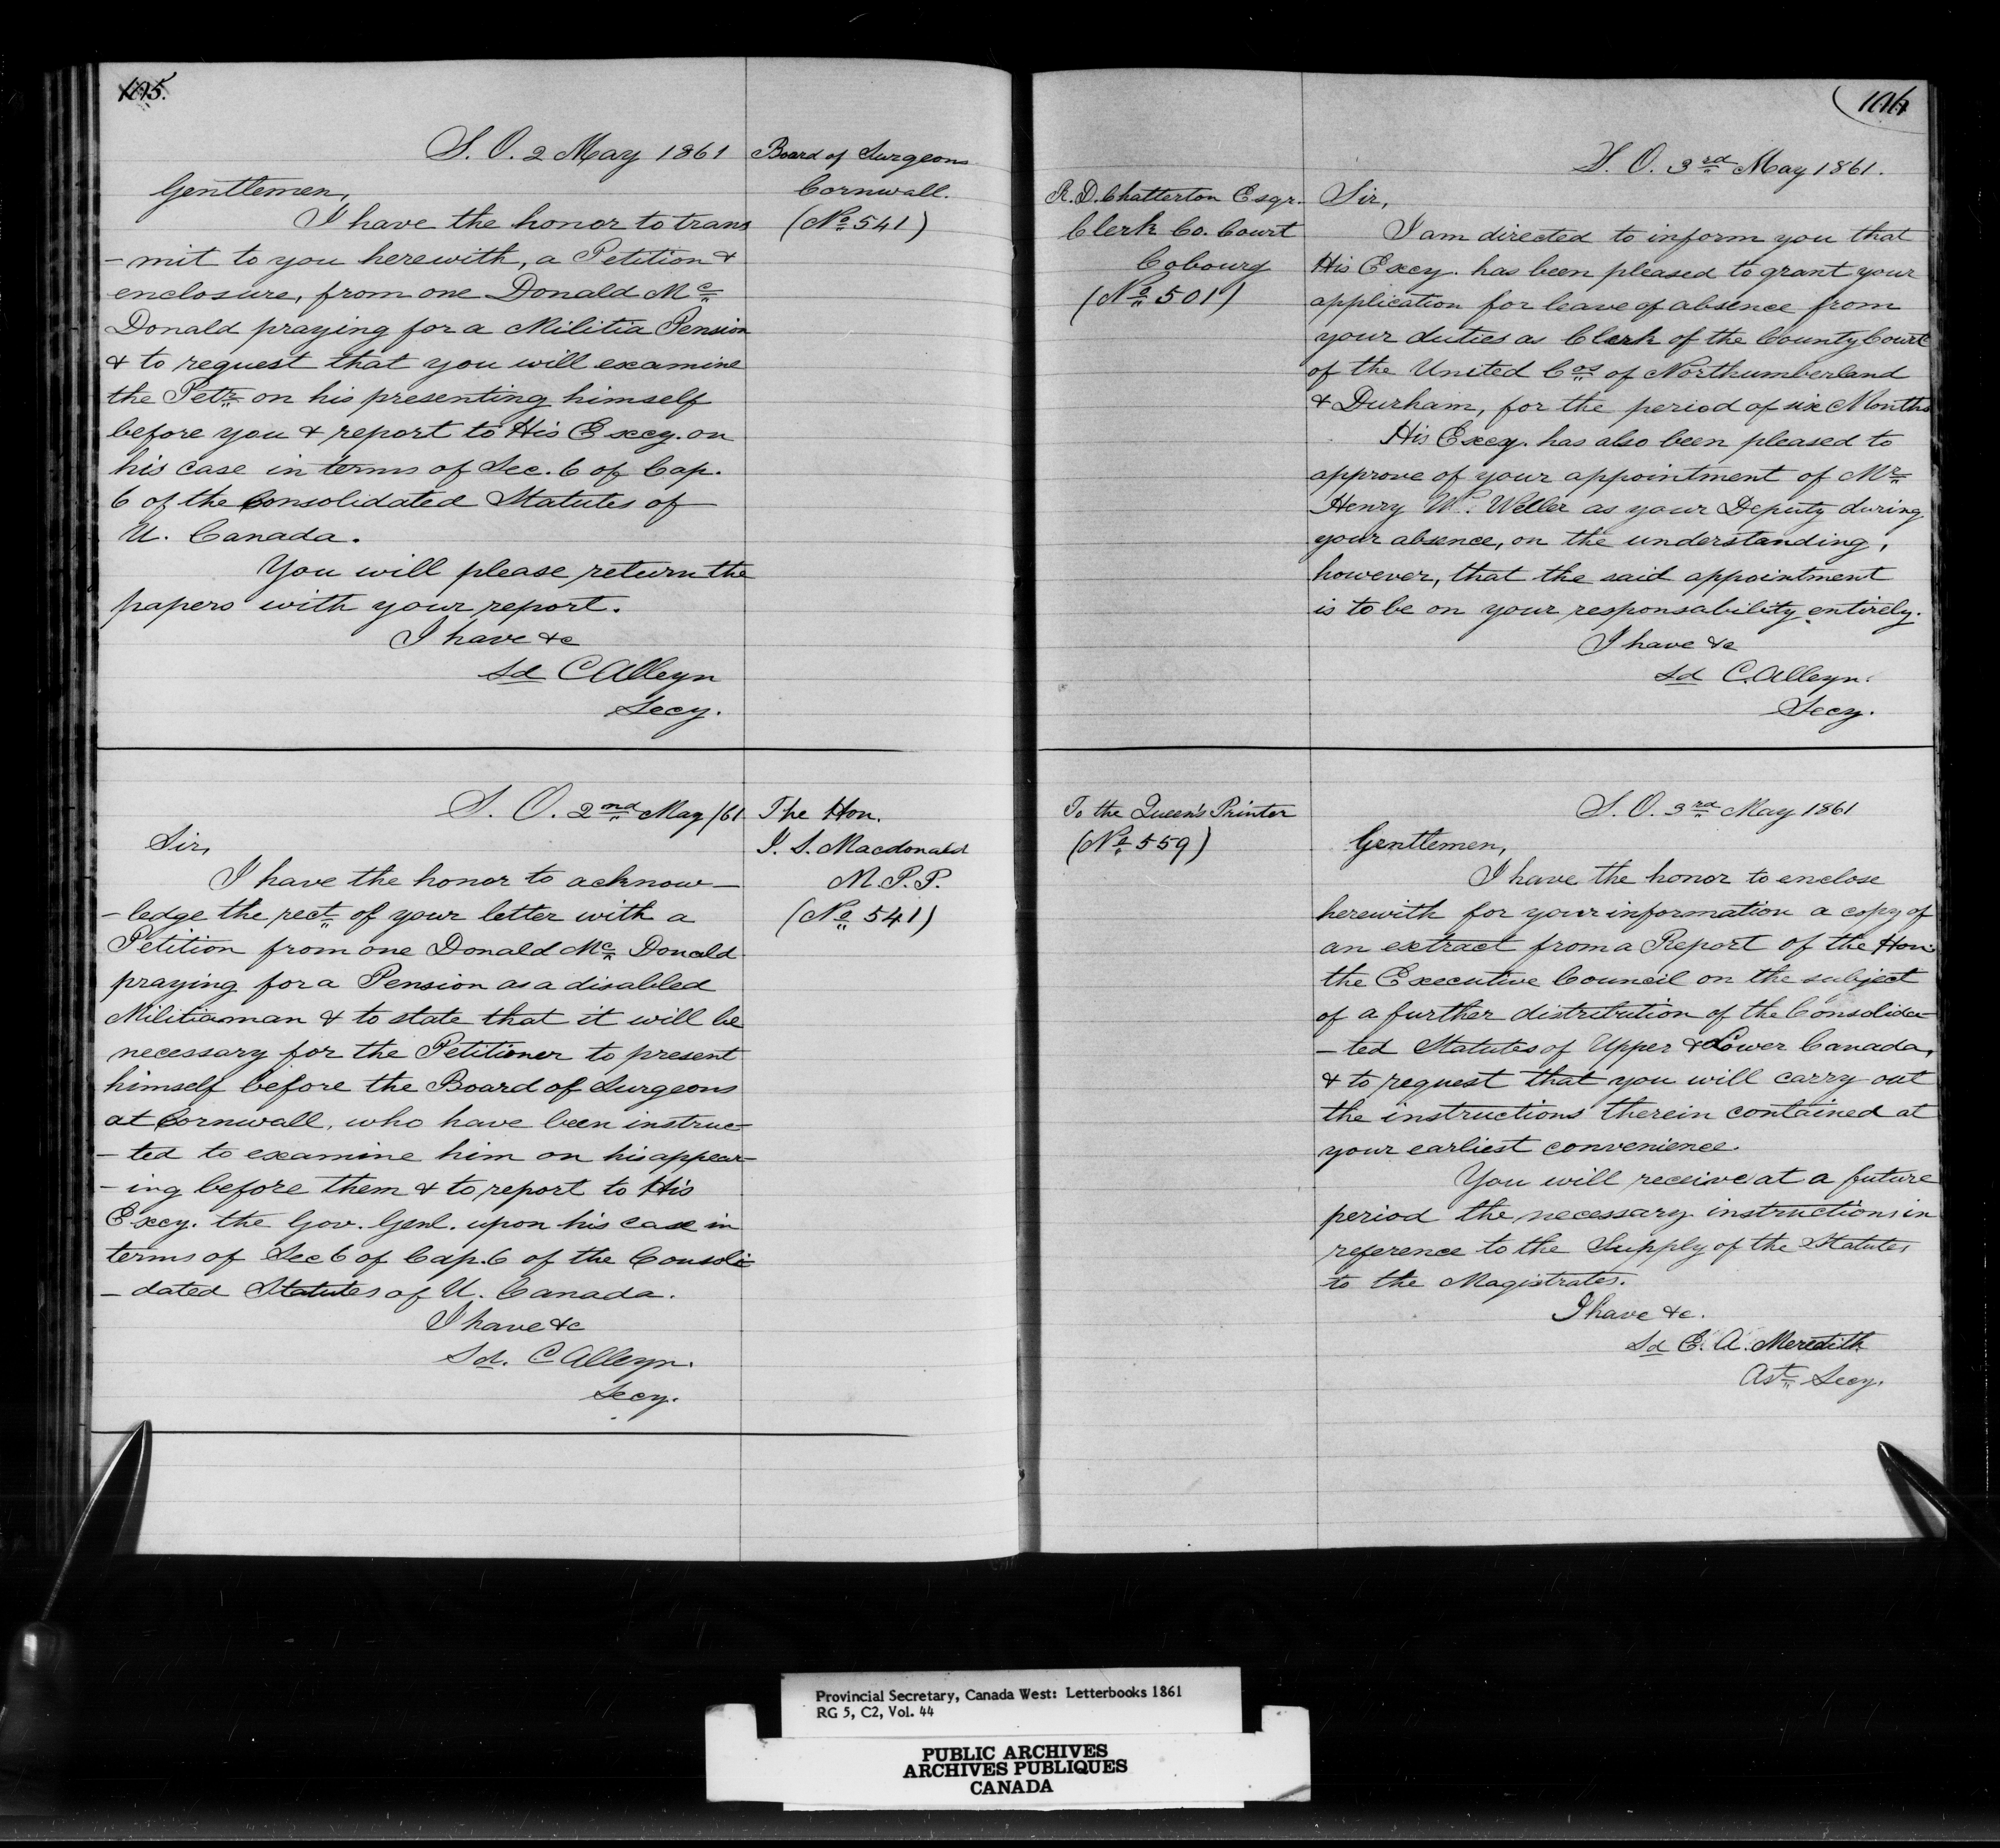 105.
S. O. 2 May 1861
Board of Surgeons
Cornwall.
(No 541)
Gentlemen,
I have the honor to trans
-mit to you herewith, a Petition &
enclosure, from one Donald Mc
Donald praying for a Militia Pension
& to request that you will examine
the Petr on his presenting himself
before you & report to His Excy. on
his case in terms of Sec. 6 of Cap.
6 of the Consolidated Statutes of
U. Canada.
You will please return the
papers with your report.
I have &c
Sd C Alleyn
Secy.
S. O. 2nd May /61
The Hon.
J. S. Macdonald
M.P.P.
(No 541)
Sir,
I have the honor to acknow-
-ledge the rect of your letter with a
Petition from one Donald Mc Donald
praying for a Pension as a disabled
Militiaman & to state that it will be
necessary for the Petitioner to present
himself before the Board of Surgeons
at Cornwall, who have been instruc-
-ted to examine him on his appear-
-ing before them & to report to His
Excy. the Gov. Genl. upon his case in
terms of Sec 6 of Cap. 6 of the Consoli-
-dated Statutes of U. Canada.
I have &c
Sd. C Alleyn.
Secy.
106
S. O. 3rd May 1861.
R. D. Chatterton Esqr.
Clerk Co. Court
Cobourg
(No 501)
Sir,
I am directed to inform you that
His Excy. has been pleased to grant your
application for leave of absence from
your duties as Clerk of the County Court
of the United Cos of Northumberland
& Durham, for the period of six Months
His Excy. has also been pleased to
approve of your appointment of Mr
Henry W. Weller as your Deputy during
your absence, on the understanding,
however, that the said appointment
is to be on your responsability entirely.
I have &c
Sd C. Alleyn.
Secy.
S. O. 3rd May 1861
To the Queen's Printer
(No 559)
Gentlemen,
I have the honor to enclose
herewith for your information a copy of
an extract from a Report of the Hon.
the Executive Council on the subject
of a further distribution of the Consolida-
-ted Statutes of Upper & Lower Canada,
& to request that you will carry out
the instructions therein contained at
your earliest convenience.
You will receive at a future
period the necessary instructions in
reference to the Supply of the Statutes
to the Magistrates.
I have &c.
Sd E. A. Meredith
Ast Secy.
Provincial Secretary, Canada West: Letterbooks 1861
RG 5, C2, Vol. 44
PUBLIC ARCHIVES
ARCHIVES PUBLIQUES
CANADA